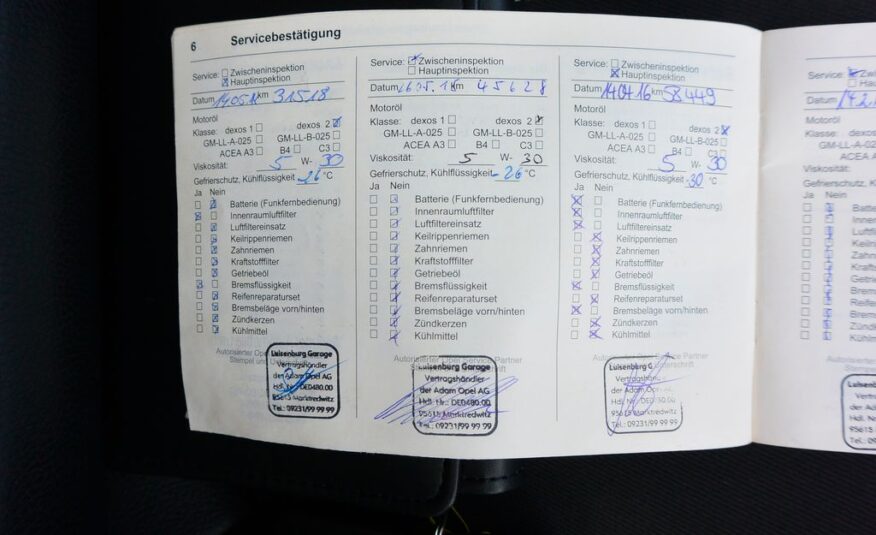 6 Servicebestätigung
Service: Zwischeninspektion
Hauptinspektion
Datum km 31518
Motoröl
Klasse: dexos 1 dexos 2
GM-LL-A-025 GM-LL-B-025
ACEA A3 B4 C3
Viskosität: 5 W- 30
Gefrierschutz, Kühlflüssigkeit -26 °C
Ja Nein
Batterie (Funkfernbedienung)
Innenraumluftfilter
Luftfiltereinsatz
Keilrippenriemen
Zahnriemen
Kraftstofffilter
Getriebeöl
Bremsflüssigkeit
Reifenreparaturset
Bremsbeläge vorn/hinten
Zündkerzen
Kühlmittel
Autorisierter Opel
Stempel und
Luisenburg Garage
Vertragshändler
der Adam Opel AG
Hdl. Nr.: DE0480.00
95615 Marktredwitz
Tel.: 09231/99 99 99
Service: Zwischeninspektion
Hauptinspektion
Datum km 45628
Motoröl
Klasse: dexos 1 dexos 2
GM-LL-A-025 GM-LL-B-025
ACEA A3 B4 C3
Viskosität: 5 W- 30
Gefrierschutz, Kühlflüssigkeit -26 °C
Ja Nein
Batterie (Funkfernbedienung)
Innenraumluftfilter
Luftfiltereinsatz
Keilrippenriemen
Zahnriemen
Kraftstofffilter
Getriebeöl
Bremsflüssigkeit
Reifenreparaturset
Bremsbeläge vorn/hinten
Zündkerzen
Kühlmittel
Autorisierter Opel Service Partner
Luisenburg Garage
Vertragshändler
der Adam Opel AG
Hdl. Nr.: DE0480.00
95615 Marktredwitz
Tel.: 09231/99 99 99
Service: Zwischeninspektion
Hauptinspektion
Datum 140416 km 58449
Motoröl
Klasse: dexos 1 dexos 2
GM-LL-A-025 GM-LL-B-025
ACEA A3 B4 C3
Viskosität: 5 W- 30
Gefrierschutz, Kühlflüssigkeit -30 °C
Ja Nein
Batterie (Funkfernbedienung)
Innenraumluftfilter
Luftfiltereinsatz
Keilrippenriemen
Zahnriemen
Kraftstofffilter
Getriebeöl
Bremsflüssigkeit
Reifenreparaturset
Bremsbeläge vorn/hinten
Zündkerzen
Kühlmittel
Autorisierter Opel Service Partner
Luisenburg G
Vertragshändler
der Adam Opel AG
95615 Marktredwitz
Tel.: 09231/99 99 99
Service: Zwisch
Hau
Datum
Motoröl
Klasse: dexos
GM-LL-A-02
ACEA A3
Viskosität:
Gefrierschutz, Kühl
Ja Nein
Batte
Innen
Luftfi
Keilri
Zahn
Kraft
Getri
Brem
Reife
Brem
Zünd
Kühl
Autorisierter
Luisenb
Vertr
der Ad
Hdl. N
95615
Tel.: 09